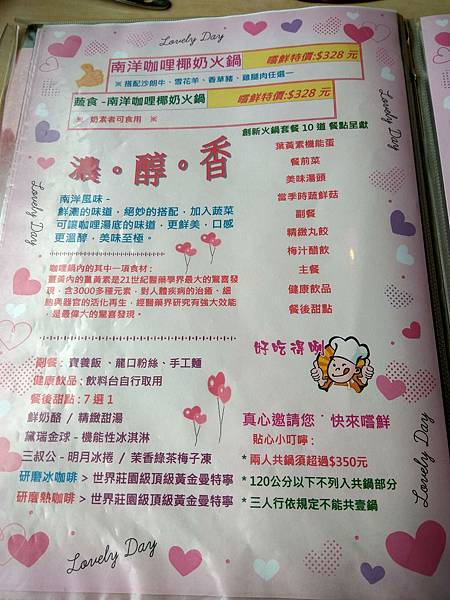 Lovely Day
南洋咖哩椰奶火鍋
嚐鮮特價:$328 元
※ 搭配沙朗牛、雪花羊、香草豬、雞腿肉任選一
蔬食 -南洋咖哩椰奶火鍋
嚐鮮特價:$328 元
※ 奶素者可食用 ※
創新火鍋套餐 10 道 餐點呈獻
葉黃素機能蛋
餐前菜
美味湯頭
當季時蔬鮮菇
副餐
精緻丸餃
梅汁醋飲
主餐
健康飲品
餐後甜點
濃。醇。香
南洋風味 -
鮮濃的味道，絕妙的搭配，加入蔬菜
可讓咖哩湯底的味道，更鮮美，口感
更溫醇，美味至極。
咖哩鍋內的其中一項食材：
薑黃內的薑黃素是21世紀醫藥學界最大的驚喜發
現，含3000多種元素，對人體疾病的治癒、細
胞與器官的活化再生，經醫藥界研究有強大效能
，是最偉大的驚喜發現。
好吃得咧
副餐：寶養飯 、龍口粉絲、手工麵
健康飲品 : 飲料台自行取用
餐後甜點 : 7 選 1
鮮奶酪 / 精緻甜湯
黛瑞金球 - 機能性冰淇淋
三叔公 - 明月冰捲 / 茉香綠茶梅子凍
研磨冰咖啡 > 世界莊園級頂級黃金曼特寧
研磨熱咖啡 > 世界莊園級頂級黃金曼特寧
真心邀請您 ‧ 快來嚐鮮
貼心小叮嚀：
* 兩人共鍋須超過$350元
* 120公分以下不列入共鍋部分
* 三人行依規定不能共壹鍋
Lovely Day
Lovely Day
Lovely Day
Lovely Day